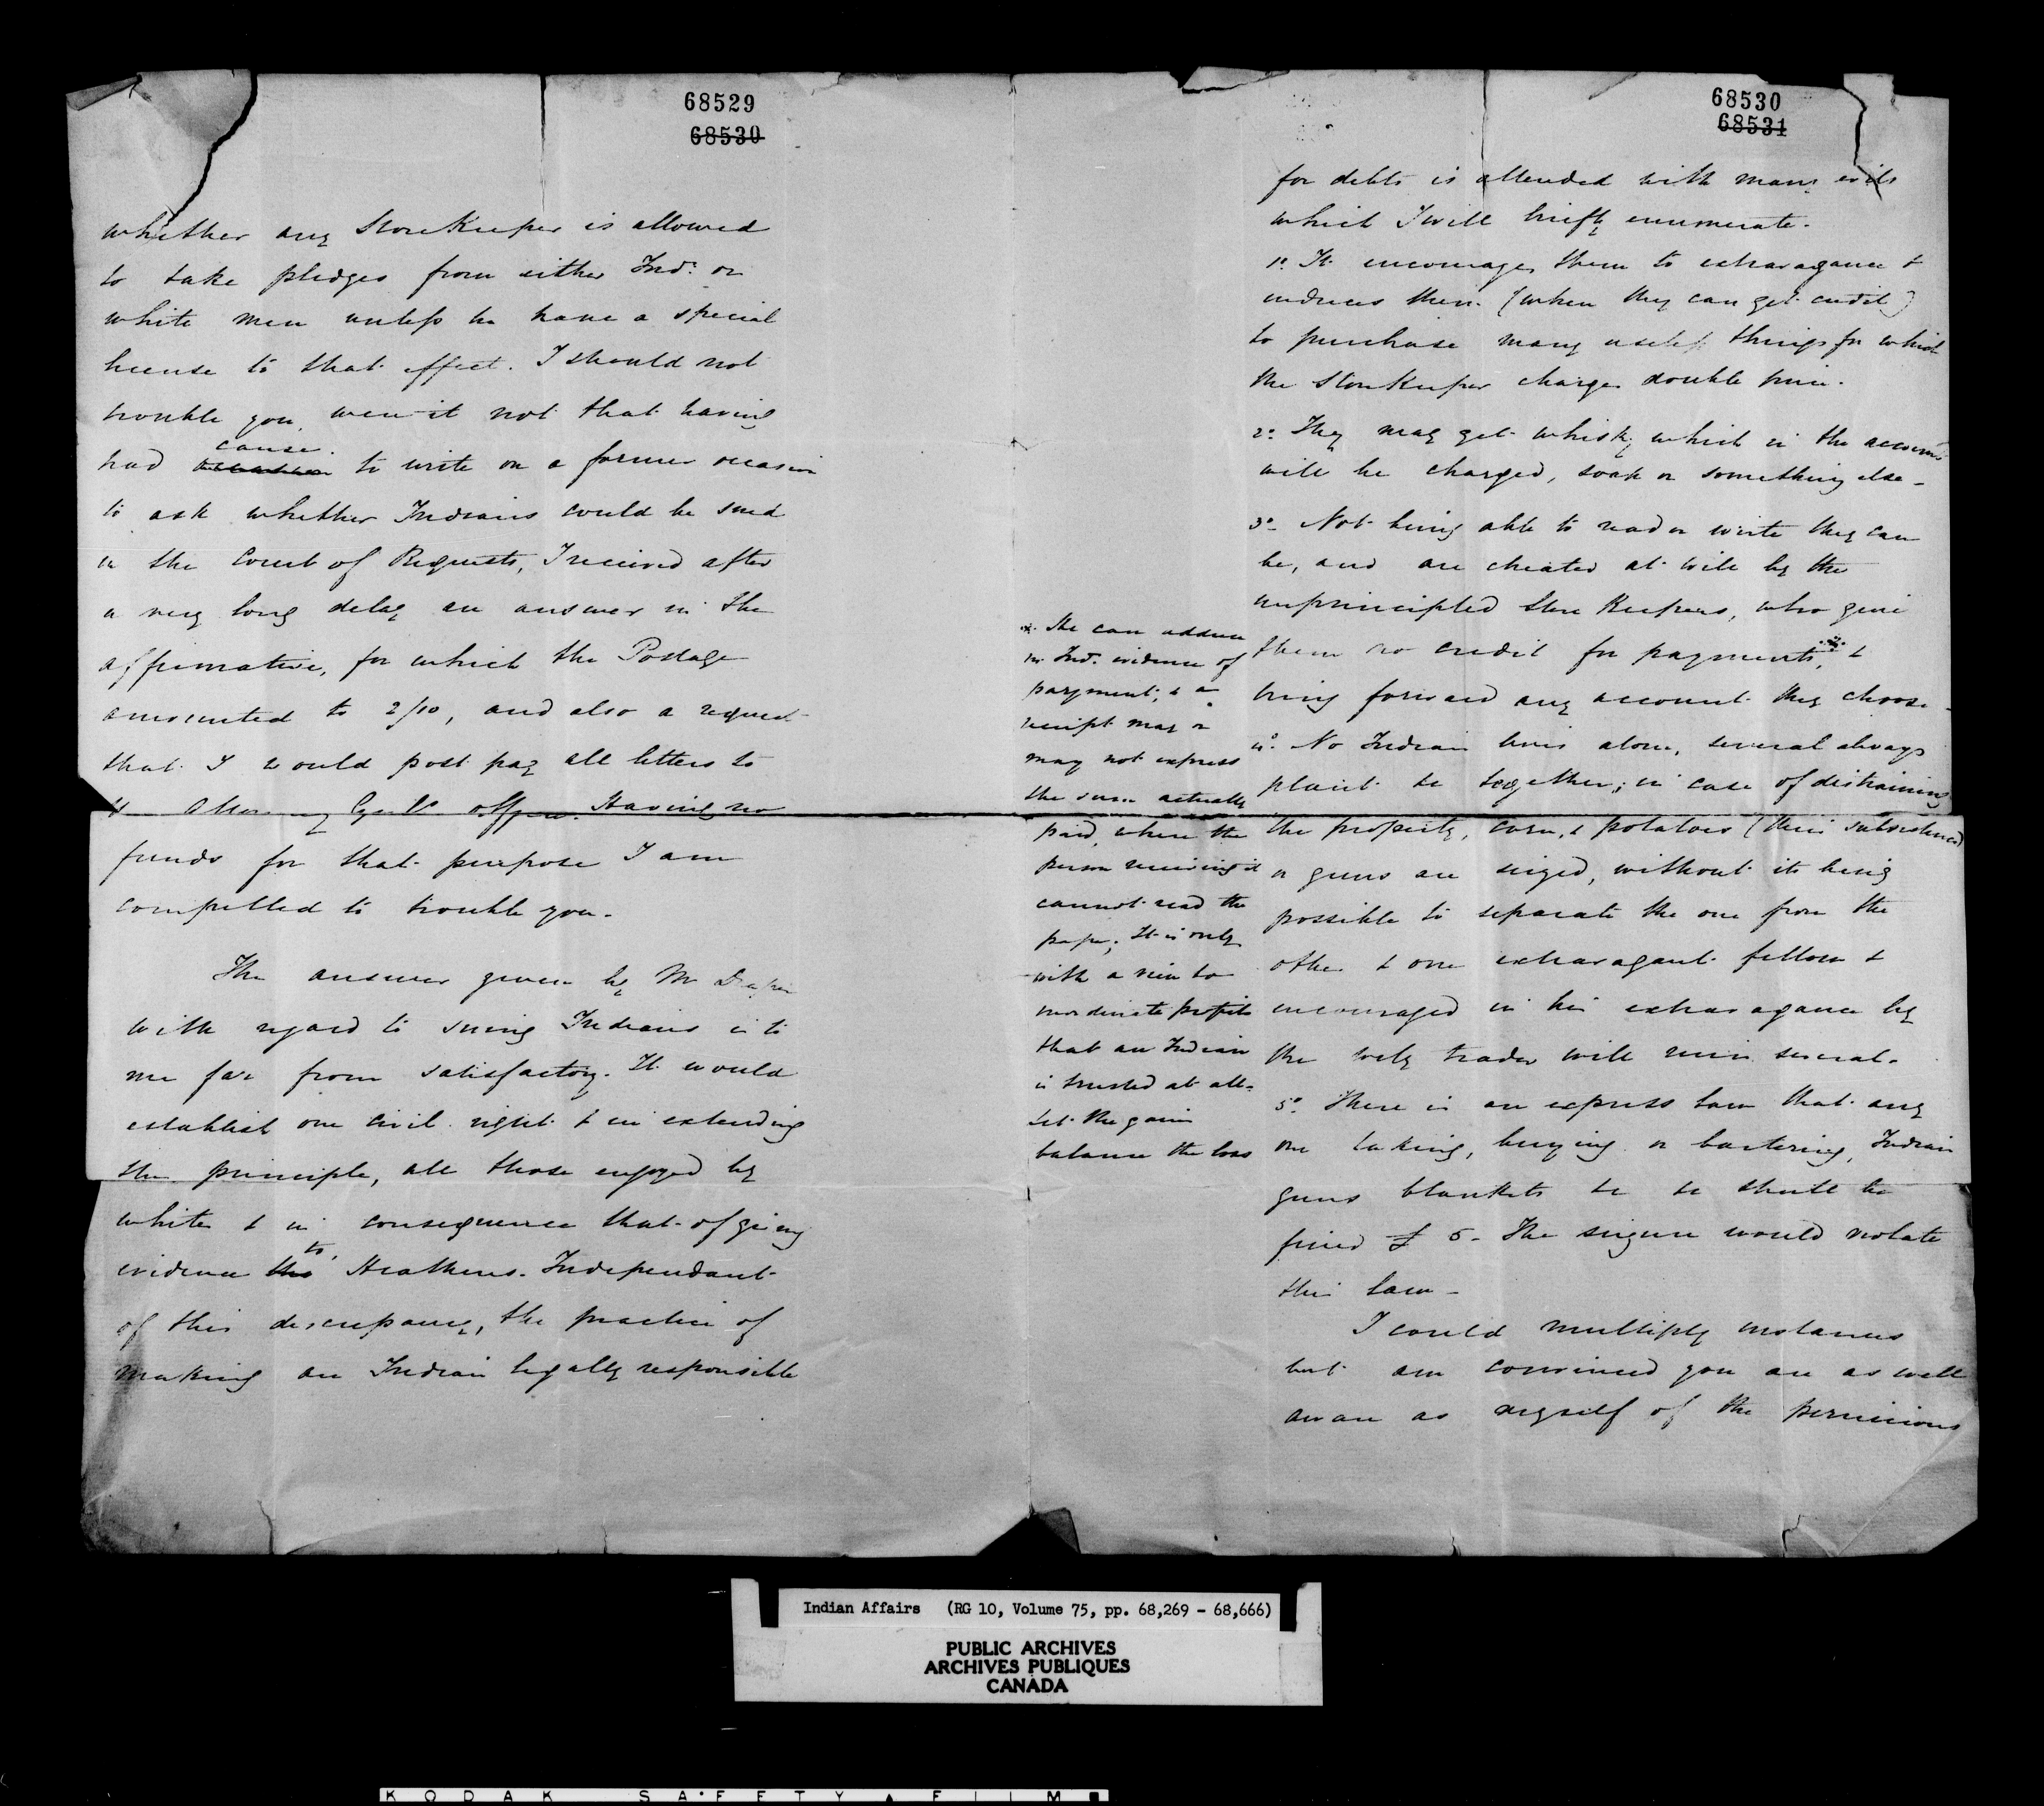 68529
68530
whether any StoreKeeper is allowed
to take pledges from either Ind: or
white men unless he have a special
license to that effect. I should not
trouble you, were it not that having
cause
had to write on a former occasion
to ask whether Indians could be sued
in the Court of Requests, I received after
a very long delay an answer in the
affirmative, for which the Postage
amounted to 2/10, and also a request
that I would post pay all letters to
Attorney Genls office. Having no
funds for that purpose I am
compelled to trouble you.
The answer given by Mr Draper
with regard to suing Indians is to
me far from satisfactory. It would
establish one civil right & in extending
the principle, all those enjoyed by
whites & in consequence that of giving
to
evidence Heathens. Independant
of this discrepancy, the practice of
making an Indian legally responsible
68530
68531
for debts is attended with many evils
which I will briefly enumerate.
1o. It encourages them to extravagance &
induces them (when they can get credit)
to purchase many useless things for which
the StoreKeeper charges double price.
2o. They may get whisky which in the accounts
will be charged, soap or something else-
3o- Not being able to read or write they can
be, and are cheated at will by the
unprincipled Store Keepers, who give
them no credit for payments, &
bring forward any account they choose-
4o. No Indian lives alone, several always
plant &c together; in case of distraining
the property, corn, & potatoes (their subsistence)
or guns are seized, without its being
possible to separate the one from the
other & one extravagant fellow &
encouraged in his extravagance by
the wily trader will ruin several-
5o. There is an express law that any
one taking, buying or bartering, Indian
guns blankets &c &c shall be
fined £ 5- The seizure would violate
this law-
I could multiply instances
but am convinced you are as well
aware as myself of the pernicious
He can adduce
no Ind. evidence of
payment, & a
receipt may or
may not express
the sum actually
paid, where the
person receiving it
cannot read the
paper; It is only
with a view to
inordinate profits
that an Indian
is trusted at all-
Let the gain
balance the loss
Indian Affairs (RG 10, Volume 75, pp. 68,269 - 68,666)
PUBLIC ARCHIVES
ARCHIVES PUBLIQUES
CANADA
KODAK SAFETY FILM